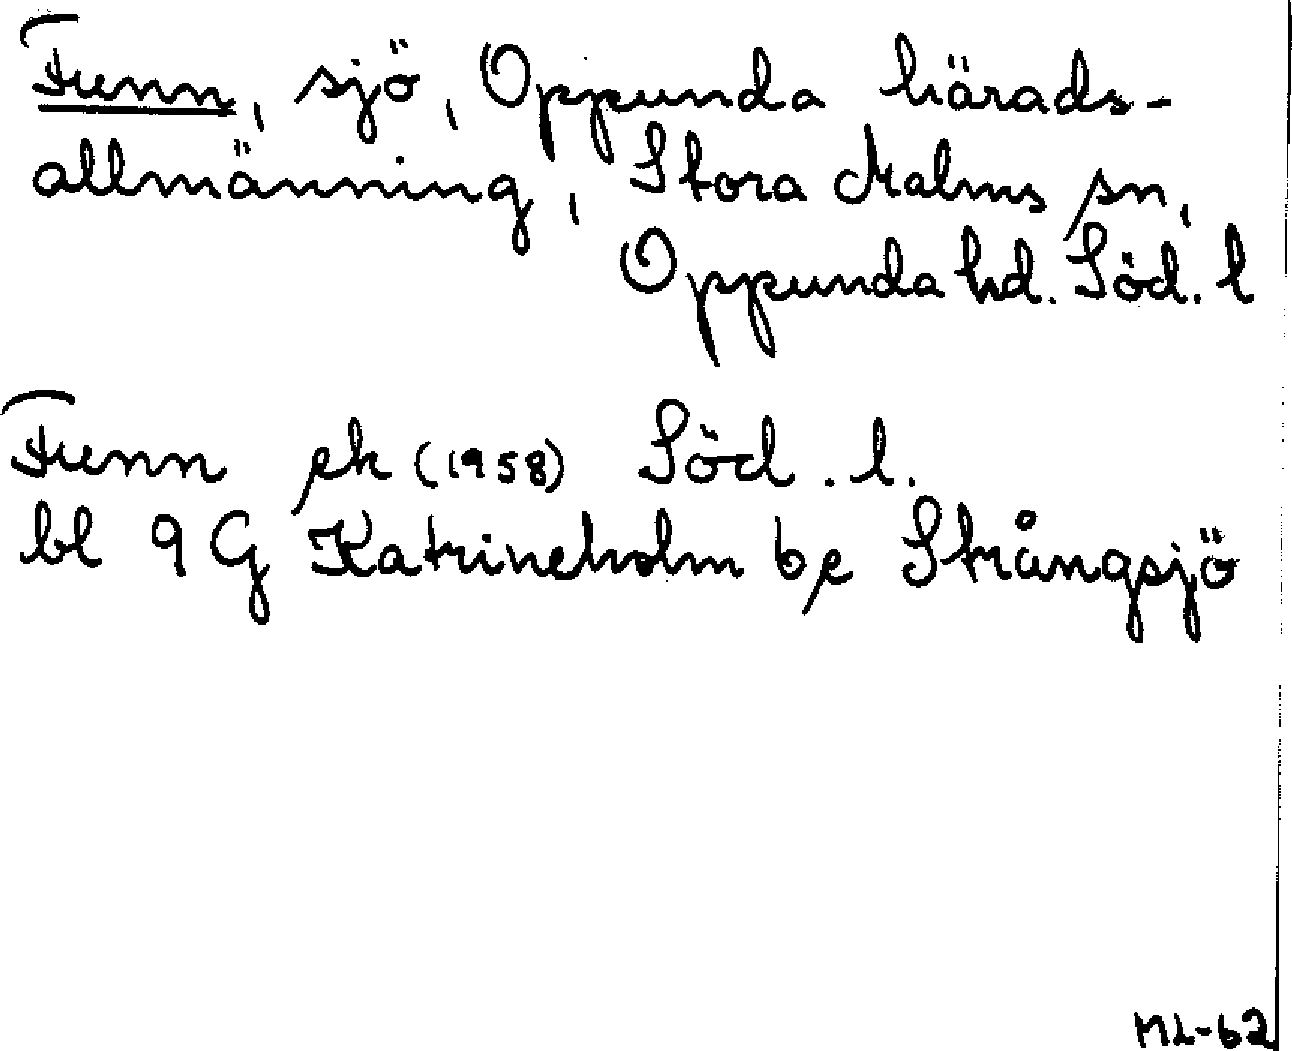 Funn, sjö, Oppunda härads-
allmänning, Stora Malms sn,
Oppunda hd. Söd. l
Funn ek (1958) Söd. l.
bl 9 G Katrineholm be Strångsjö
ML-62